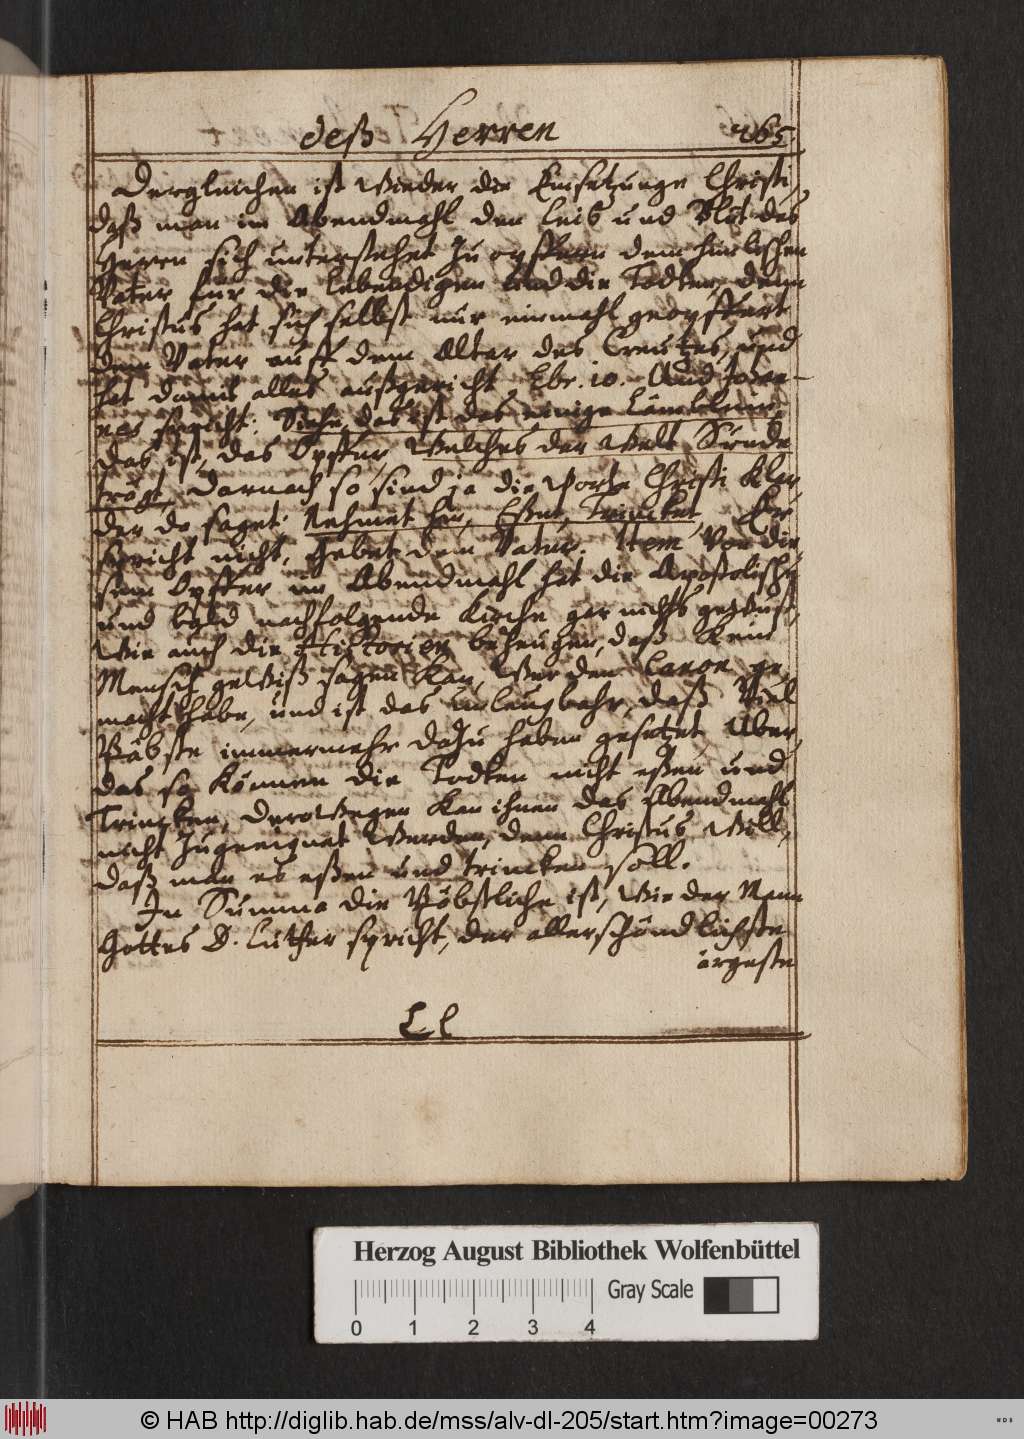 deß Herren 265
Dergleichen ist Wieder die Einsetzunge Christi,
daß man im Abendmahl den Leib und Blut des
Herren sich unterstehet zu opffern dem himlischen
Vater für die Lebendigen und die Todten, denn
Christus hat sich selbst nur einmahl geopffert
dem Vater auff dem Altar des Creutzes, und
hat damit alles außgericht, Ebr. 10. Und Johan-
nes spricht: Siehe, das ist das einige Lämblein,
das ist, das Opffer, Welches der Welt Sünde
trägt, Darnach so sind ja die Worte Christi Klar,
der do saget: Nehmet hin, Eßet, Trincket, Er
spricht nicht, Gebet dem Vater. Item, Von die-
sem Opffer im Abendmahl hat die Apostolische
und bald nachfolgende Kirche gar nichts gewust,
Wie auch die Historien bezeugen, daß Kein
Mensch gewiß sagen Kan, Wer den Canon ge-
macht habe, und ist das unleugbahr, daß Viel
Päbste immermehr dazu haben gesetzet, Uber
das so Können die Todten nicht eßen und
Trincken, Derowegen Kan ihnen das Abendmahl
nicht zugeeignet Werden, denn Christus Will,
daß man es eßen und trincken soll.
In Summa die Päbstliche ist, Wie der Mann
Gottes D. Luther spricht, der allerschändlichste
ärgeste
Ll
Herzog August Bibliothek Wolfenbüttel
0 1 2 3 4 Gray Scale
© HAB http://diglib.hab.de/mss/alv-dl-205/start.htm?image=00273